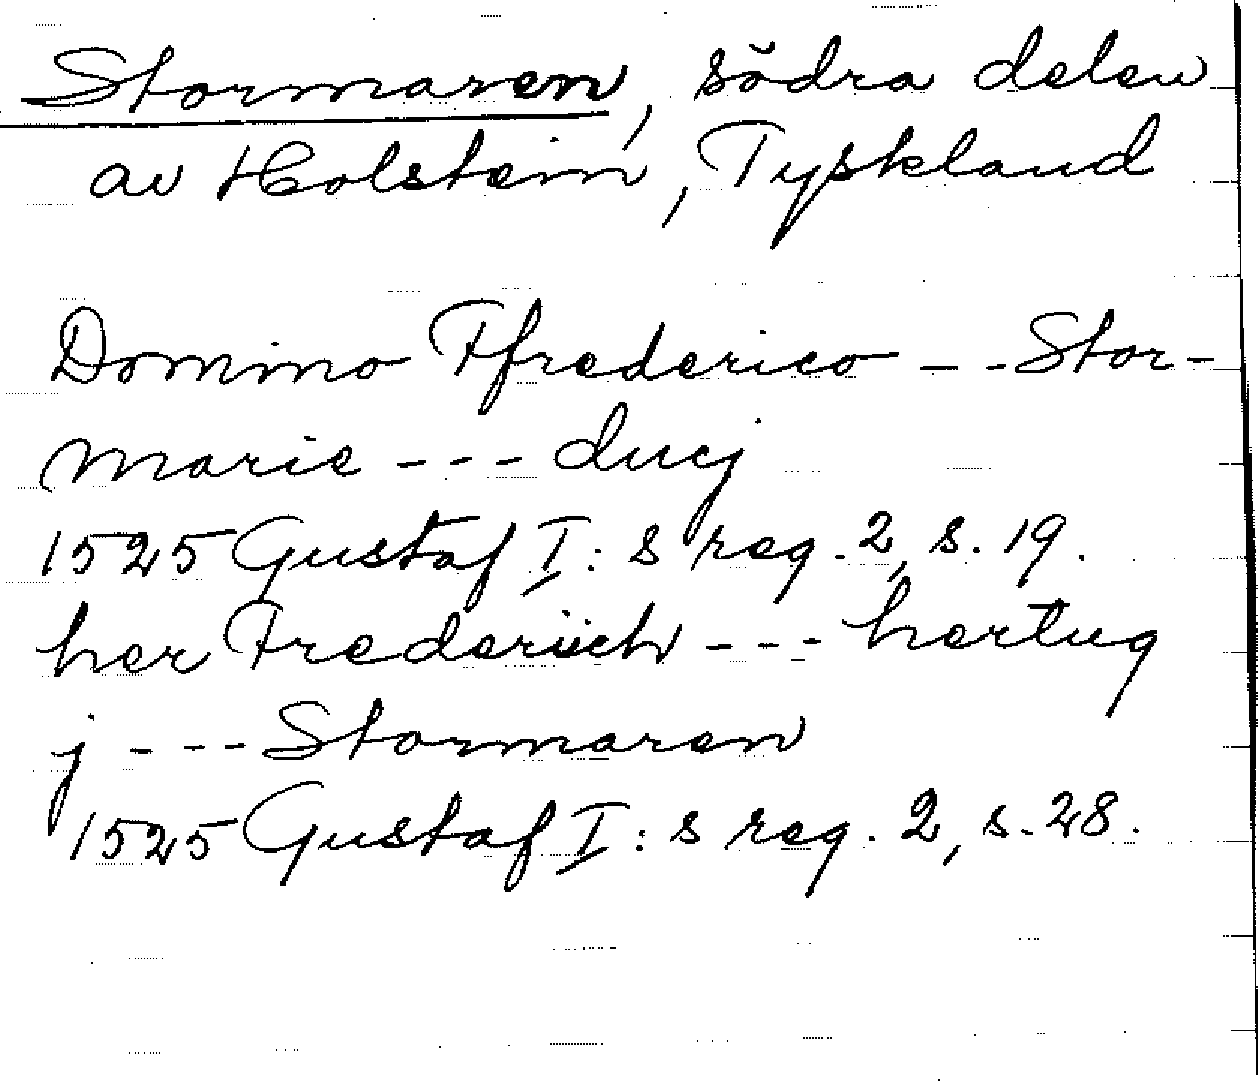 Stormaren, södra delen
av Holstein, Tyskland
Domino Ffrederico - - Stor-
marie - - - ducj
1525 Gustaf I: s reg. 2, s. 19.
her Frederich - - - hertug
j - - - Stormaren
1525 Gustaf I: s reg. 2, s. 28.